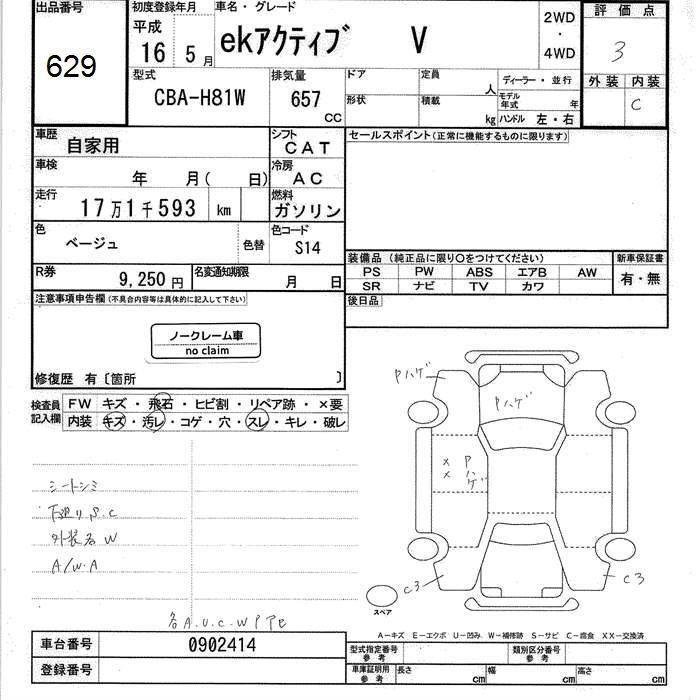 出品番号
629
初度登録年月
平成
16 5 月
車名・グレード
ekアクティブ V
2WD
・
4WD
評価点
3
外装 内装
C
型式
CBA-H81W
排気量
657
CC
ドア
定員
人
ディーラー・並行
形状
積載
kg
モデル年式 年
ハンドル 左・右
車歴
自家用
シフト
CAT
セールスポイント(正常に機能するものに限ります)
車検
年 月( 日)
冷房
AC
走行
17万1千593 km
燃料
ガソリン
色
ベージュ
色替
色コード
S14
装備品 (純正品に限り○をつけてください)
新車保証書
PS PW ABS エアB AW
有・無
SR ナビ TV カワ
R券
9,250円
名変通知期限
月 日
後日品
注意事項申告欄(不具合内容等は具体的に記入して下さい)
ノークレーム車
no claim
修復歴 有〔箇所 〕
検査員記入欄
FW キズ・飛石・ヒビ割・リペア跡・×要
内装 キズ・汚レ・コゲ・穴・スレ・キレ・破レ
Pハゲ
Pハゲ
× P
× ハゲ
シートシミ
下廻り S.C
外装各W
A/W.A
C3
C3
スペア
各A.U.C.W
A－キズ E－エクボ U－凹み W－補修跡 S－サビ C－腐食 XX－交換済
車台番号
0902414
登録番号
型式指定番号
参考
類別区分番号
参考
車庫証明用
参考
長さ cm 幅 cm 高さ cm